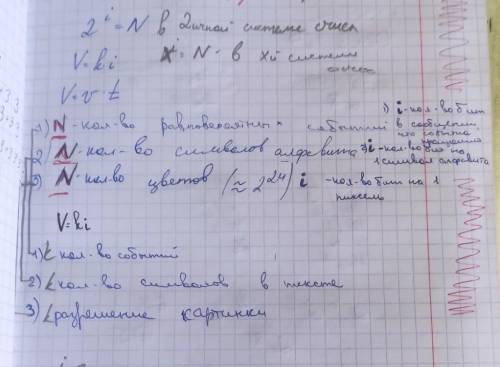 2^i = N в 2ичной системе счисл
V=ki X^i = N - в Xй системе
V=v·t
1) i - кол-во бит
1) N - кол-во равновероятных событий в сообщении, что событие произошло
2) N - кол-во символов алфавита 2) i - кол-во бит на 1 символ алфавита
3) N - кол-во цветов (≈ 2^24) i - кол-во бит на 1 пиксель
V=ki
1) k кол-во событий
2) k кол-во символов в тексте
3) k разрешение картинки